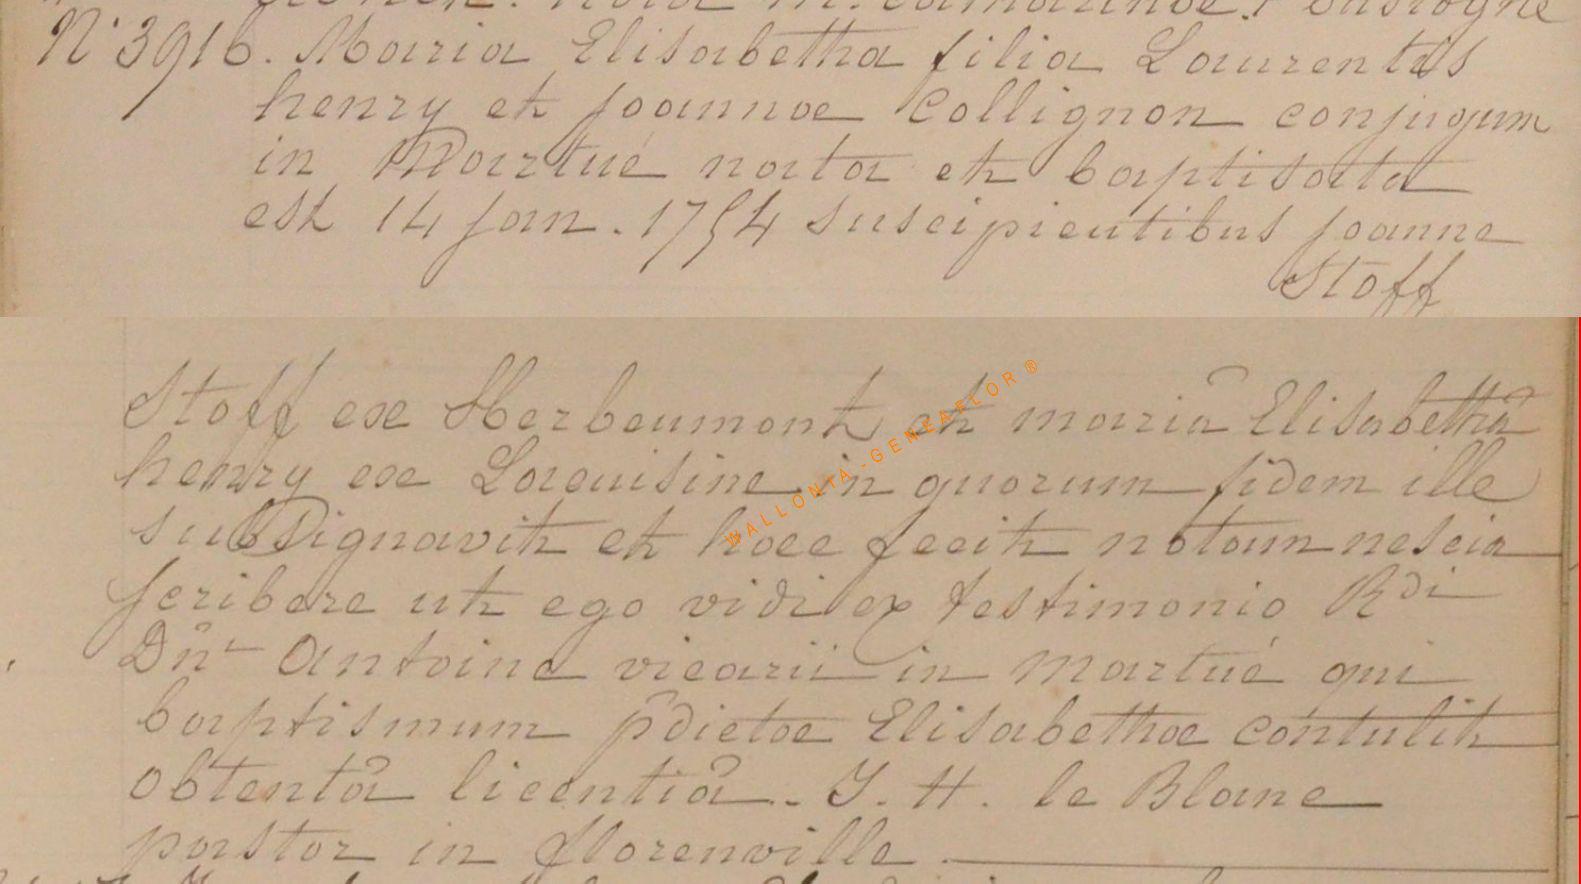 N° 3916. Maria Elisabetha filia Laurentis
henry et Joannoe Collignon conjugum
in Martué nata et baptisata
est 14 Jan. 1754 suscipientibus Joanne
Stoff
Stoff ex Herbeumont et mariâ Elisabethâ
henry ex Lacuisine in quorum fidem ille
subsignavit et hoec fecit notam nescia
scribere ut ego vidi ex testimonio Rdi
Dni Antoine vicarii in Martué qui
baptismum p̄dictoe Elisabethoe contulit
obtentâ licentiâ. J. H. le Blanc
pastor in florenville.
WALLONIA-GENEAFLOR ®